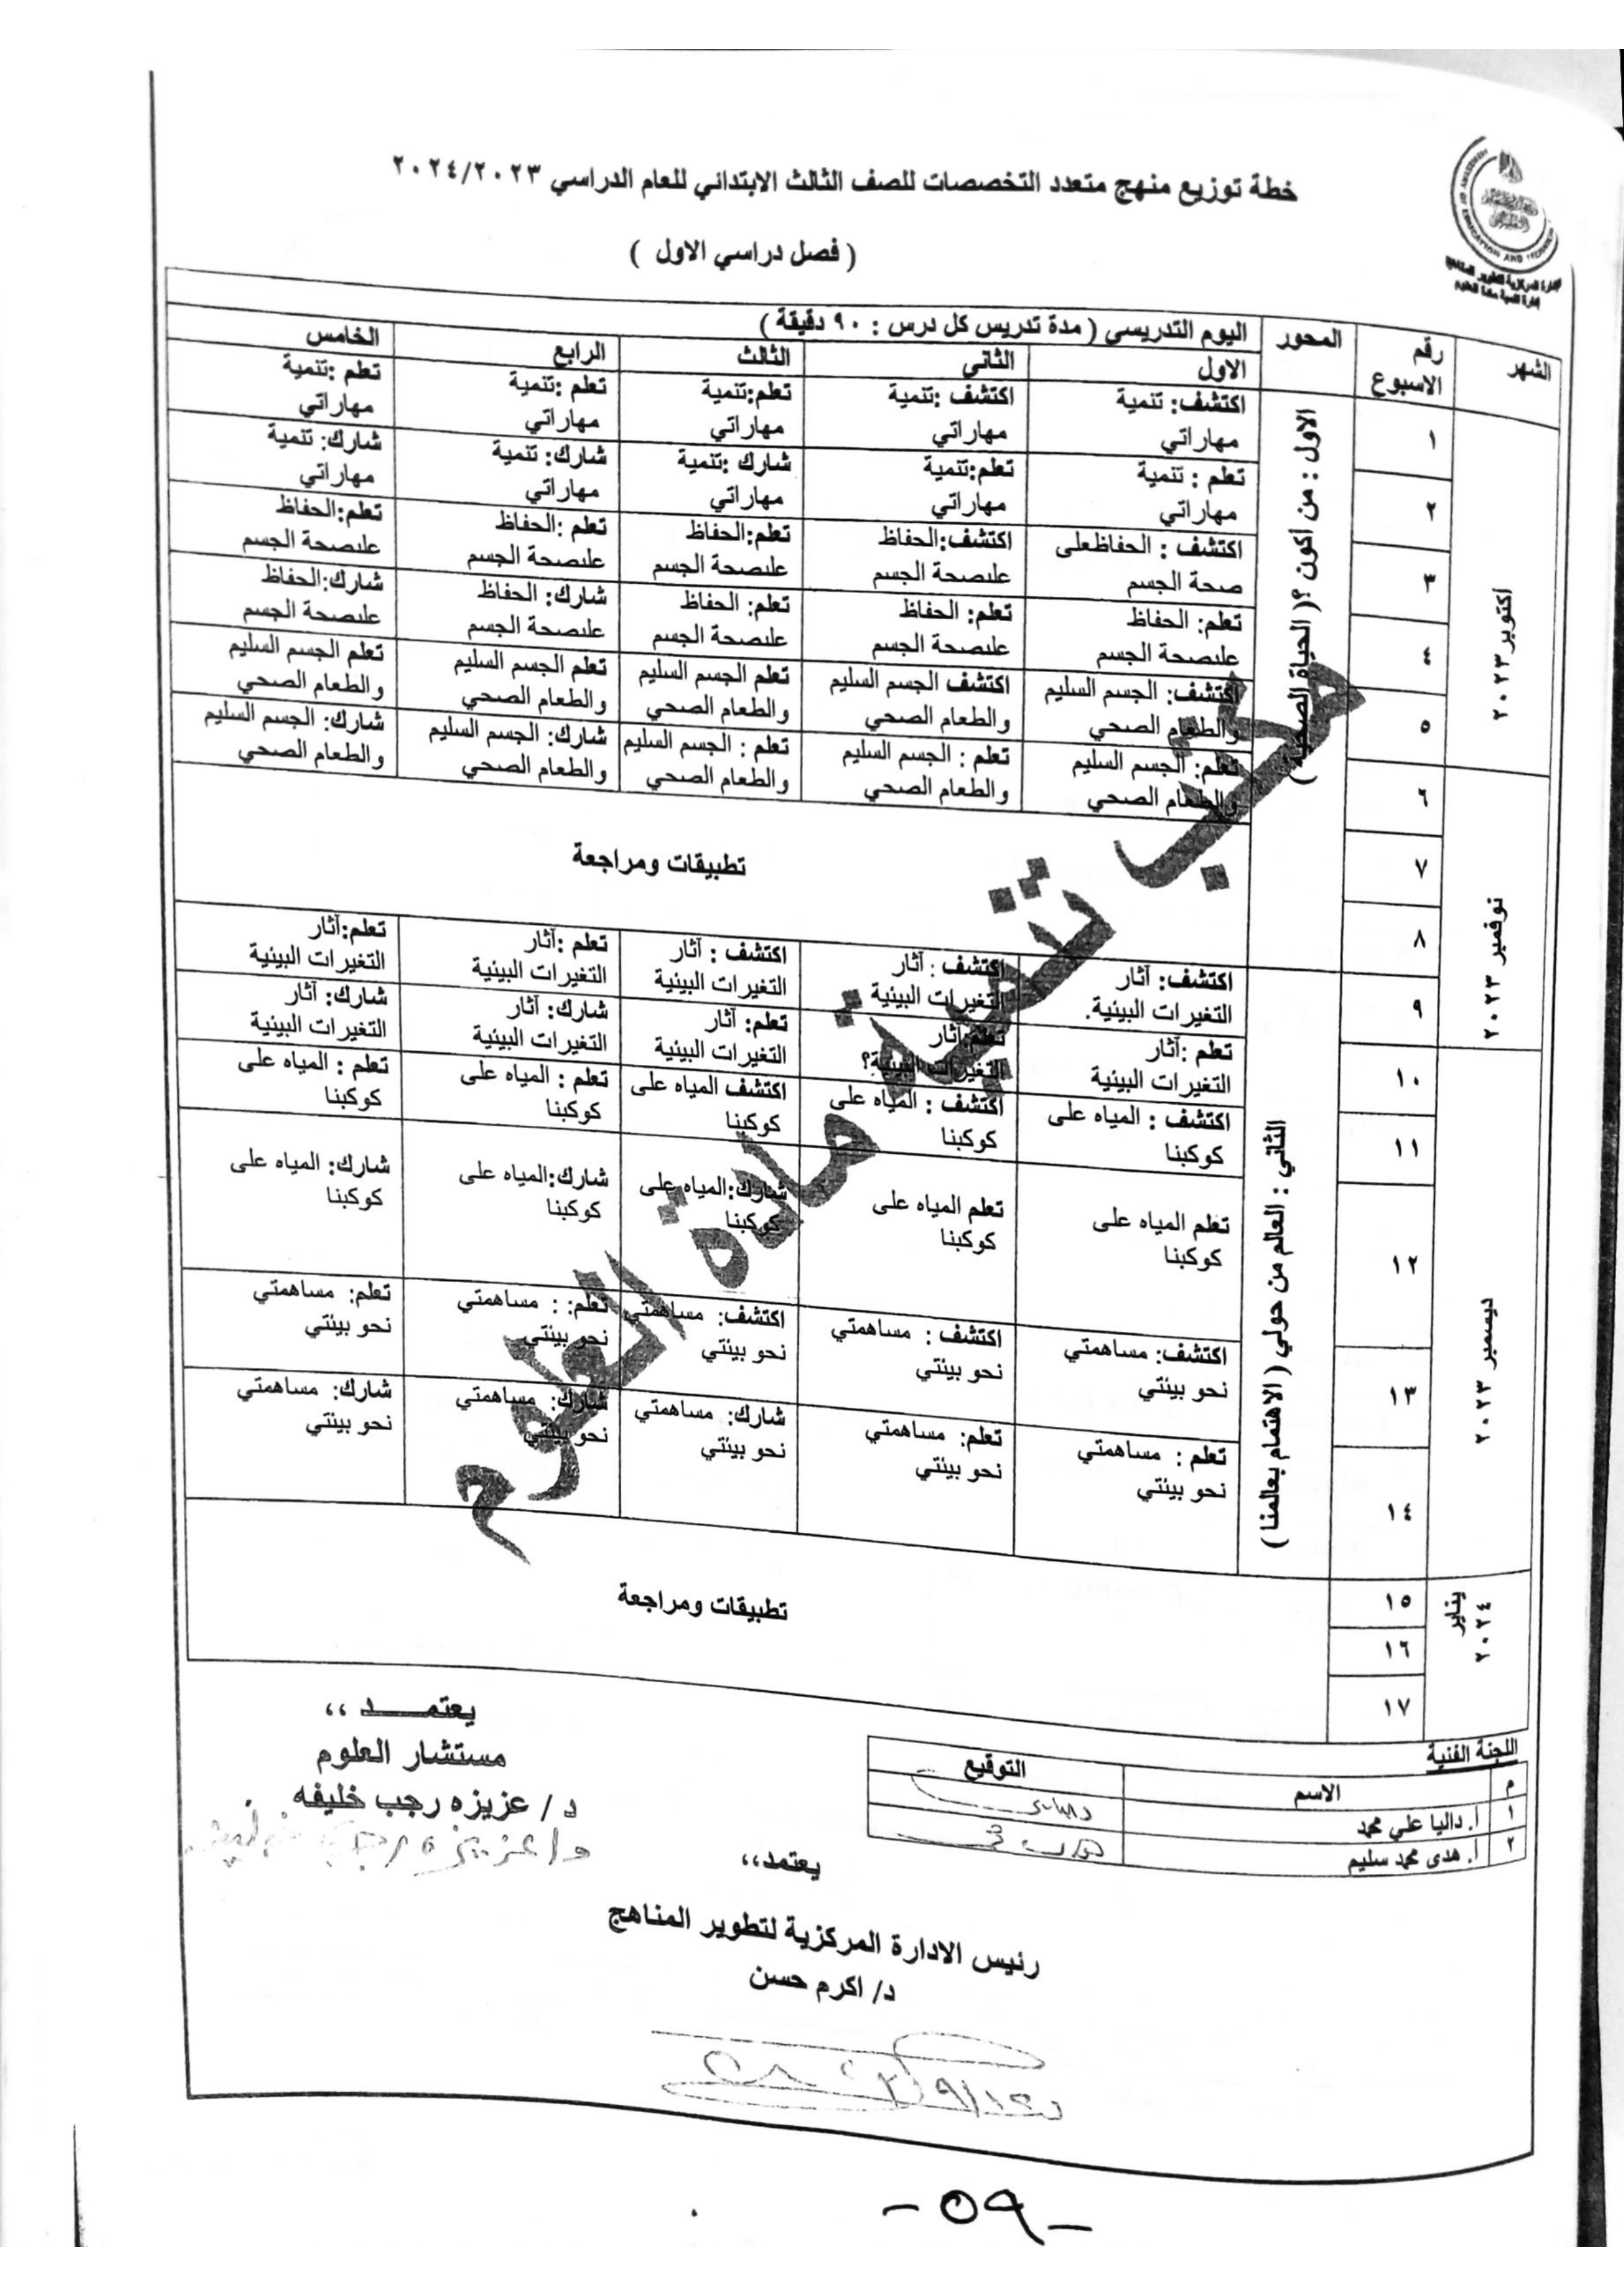 خطة توزيع منهج متعدد التخصصات للصف الثالث الابتدائي للعام الدراسي ٢٠٢٤/٢٠٢٣
( فصل دراسي الاول )
MINISTRY OF EDUCATION AND TECHNICAL
الإدارة المركزية لتطوير المناهج
إدارة تنمية مادة العلوم
الشهر
رقم الاسبوع
المحور
اليوم التدريسي ( مدة تدريس كل درس : ٩٠ دقيقة )
الاول الثاني الثالث الرابع الخامس
أكتوبر ٢٠٢٣
الاول : من أكون ؟( الحياة الصحية )
١
اكتشف: تنمية مهاراتي
اكتشف :تنمية مهاراتي
تعلم:تنمية مهاراتي
تعلم :تنمية مهاراتي
تعلم :تنمية مهاراتي
٢
تعلم : تنمية مهاراتي
تعلم:تنمية مهاراتي
شارك :تنمية مهاراتي
شارك: تنمية مهاراتي
شارك: تنمية مهاراتي
٣
اكتشف : الحفاظعلى صحة الجسم
اكتشف:الحفاظ علىصحة الجسم
تعلم:الحفاظ علىصحة الجسم
تعلم :الحفاظ علىصحة الجسم
تعلم:الحفاظ علىصحة الجسم
٤
تعلم: الحفاظ علىصحة الجسم
تعلم: الحفاظ علىصحة الجسم
تعلم: الحفاظ علىصحة الجسم
شارك: الحفاظ علىصحة الجسم
شارك:الحفاظ علىصحة الجسم
٥
اكتشف: الجسم السليم والطعام الصحي
اكتشف الجسم السليم والطعام الصحي
تعلم الجسم السليم والطعام الصحي
تعلم الجسم السليم والطعام الصحي
تعلم الجسم السليم والطعام الصحي
نوفمبر ٢٠٢٣
٦
تعلم: الجسم السليم والطعام الصحي
تعلم : الجسم السليم والطعام الصحي
تعلم : الجسم السليم والطعام الصحي
شارك: الجسم السليم والطعام الصحي
شارك: الجسم السليم والطعام الصحي
٧
٨
تطبيقات ومراجعة
الثاني : العالم من حولي ( الاهتمام بعالمنا )
٩
اكتشف: آثار التغيرات البيئية.
اكتشف : آثار التغيرات البيئية
اكتشف : آثار التغيرات البيئية
تعلم :آثار التغيرات البيئية
تعلم:آثار التغيرات البيئية
ديسمبر ٢٠٢٣
١٠
تعلم :آثار التغيرات البيئية
تعلم:آثار التغيرات البيئية؟
تعلم: آثار التغيرات البيئية
شارك: آثار التغيرات البيئية
شارك: آثار التغيرات البيئية
١١
اكتشف : المياه على كوكبنا
اكتشف : المياه على كوكبنا
اكتشف المياه على كوكبنا
تعلم : المياه على كوكبنا
تعلم : المياه على كوكبنا
١٢
تعلم المياه على كوكبنا
تعلم المياه على كوكبنا
شارك:المياه على كوكبنا
شارك:المياه على كوكبنا
شارك: المياه على كوكبنا
١٣
اكتشف: مساهمتي نحو بيئتي
اكتشف : مساهمتي نحو بيئتي
اكتشف: مساهمتي نحو بيئتي
تعلم: : مساهمتي نحو بيئتي
تعلم: مساهمتي نحو بيئتي
١٤
تعلم : مساهمتي نحو بيئتي
تعلم: مساهمتي نحو بيئتي
شارك: مساهمتي نحو بيئتي
شارك: مساهمتي نحو بيئتي
شارك: مساهمتي نحو بيئتي
يناير ٢٠٢٤
١٥
١٦
١٧
تطبيقات ومراجعة
مكتب تنمية مادة العلوم
اللجنة الفنية
م الاسم التوقيع
١ أ. داليا علي محمد داليا
٢ أ. هدى محمد سليم
يعتمـــد ،،
مستشار العلوم
د/ عزيزه رجب خليفه
د/ عزيزه رجب خليفه
يعتمد،،
رئيس الادارة المركزية لتطوير المناهج
د/ اكرم حسن
- ٥٩ -